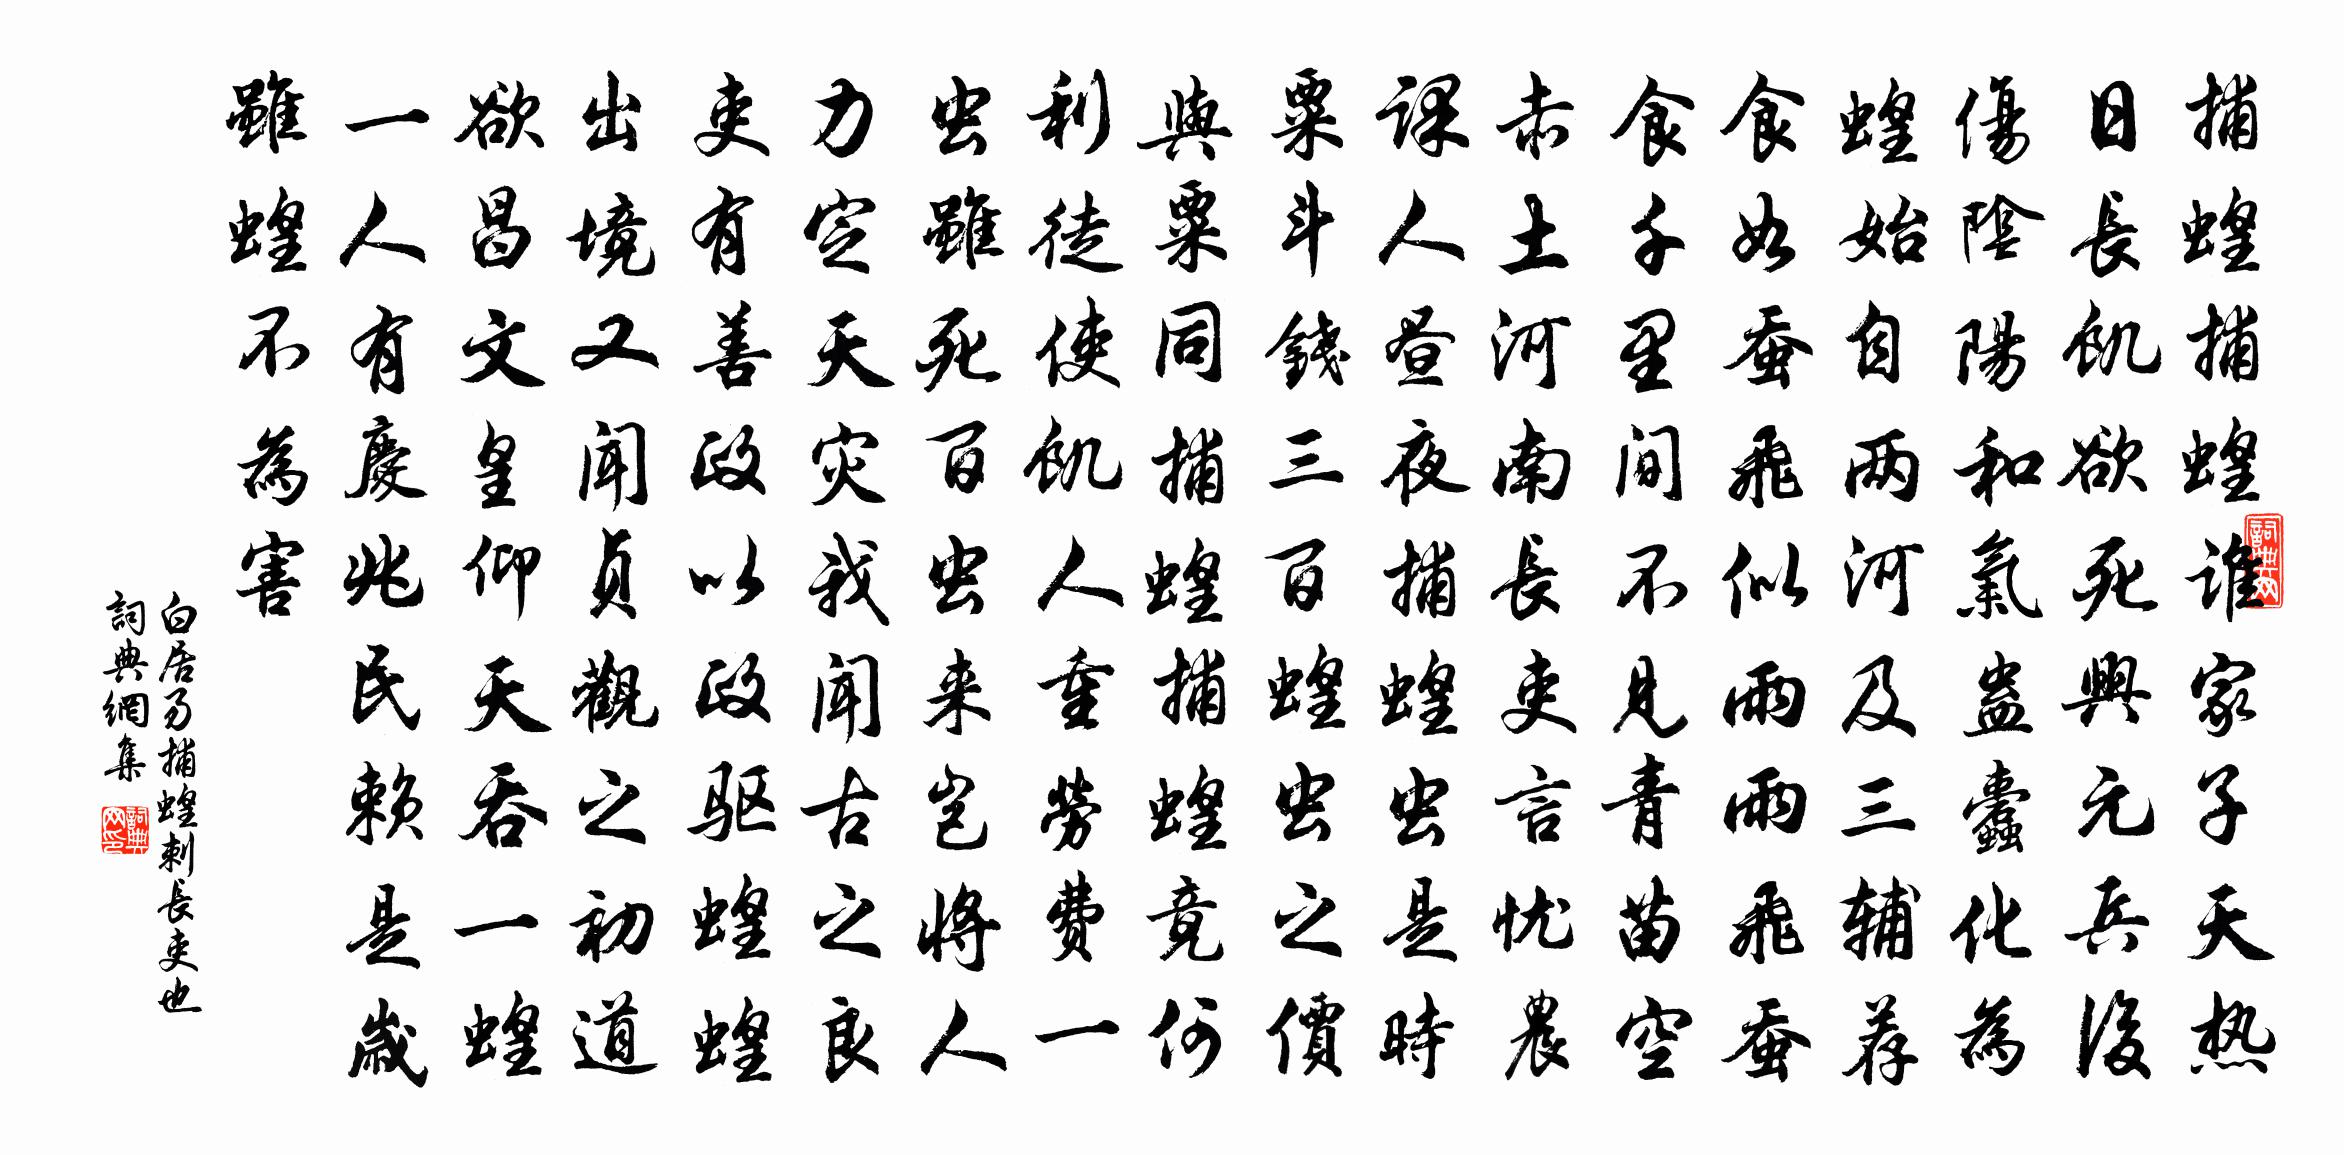 捕蝗捕蝗谁家子天热
日長飢欲死興元兵後
傷陰陽和氣蛊蠹化為
蝗始自两河及三辅荐
食如蚕飛似雨雨飛蚕
食千里间不見青苗空
赤土河南長吏言忧農
課人昼夜捕蝗虫是時
粟斗錢三百蝗虫之價
與粟同捕蝗捕蝗竟何
利徒使飢人重勞費一
虫雖死百虫来岂将人
力定天灾我闻古之良
吏有善政以政驱蝗蝗
出境又闻貞觀之初道
欲昌文皇仰天吞一蝗
一人有慶兆民赖是歲
雖蝗不為害
白居易捕蝗刺長吏也
詞典網集